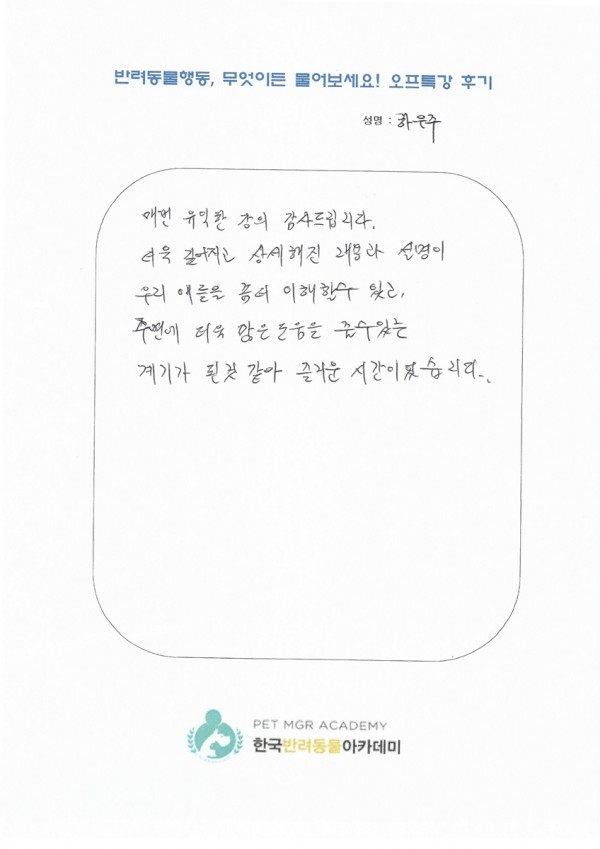 반려동물행동, 무엇이든 물어보세요! 오프특강 후기
성명 : 하은주
매번 유익한 강의 감사드립니다.
더욱 깊어지고 상세해진 내용과 설명이
우리 애들을 좀더 이해할수 있고,
주변에 더욱 많은 도움을 줄수있는
계기가 된것 같아 즐거운 시간이었습니다..
PET MGR ACADEMY
한국반려동물아카데미